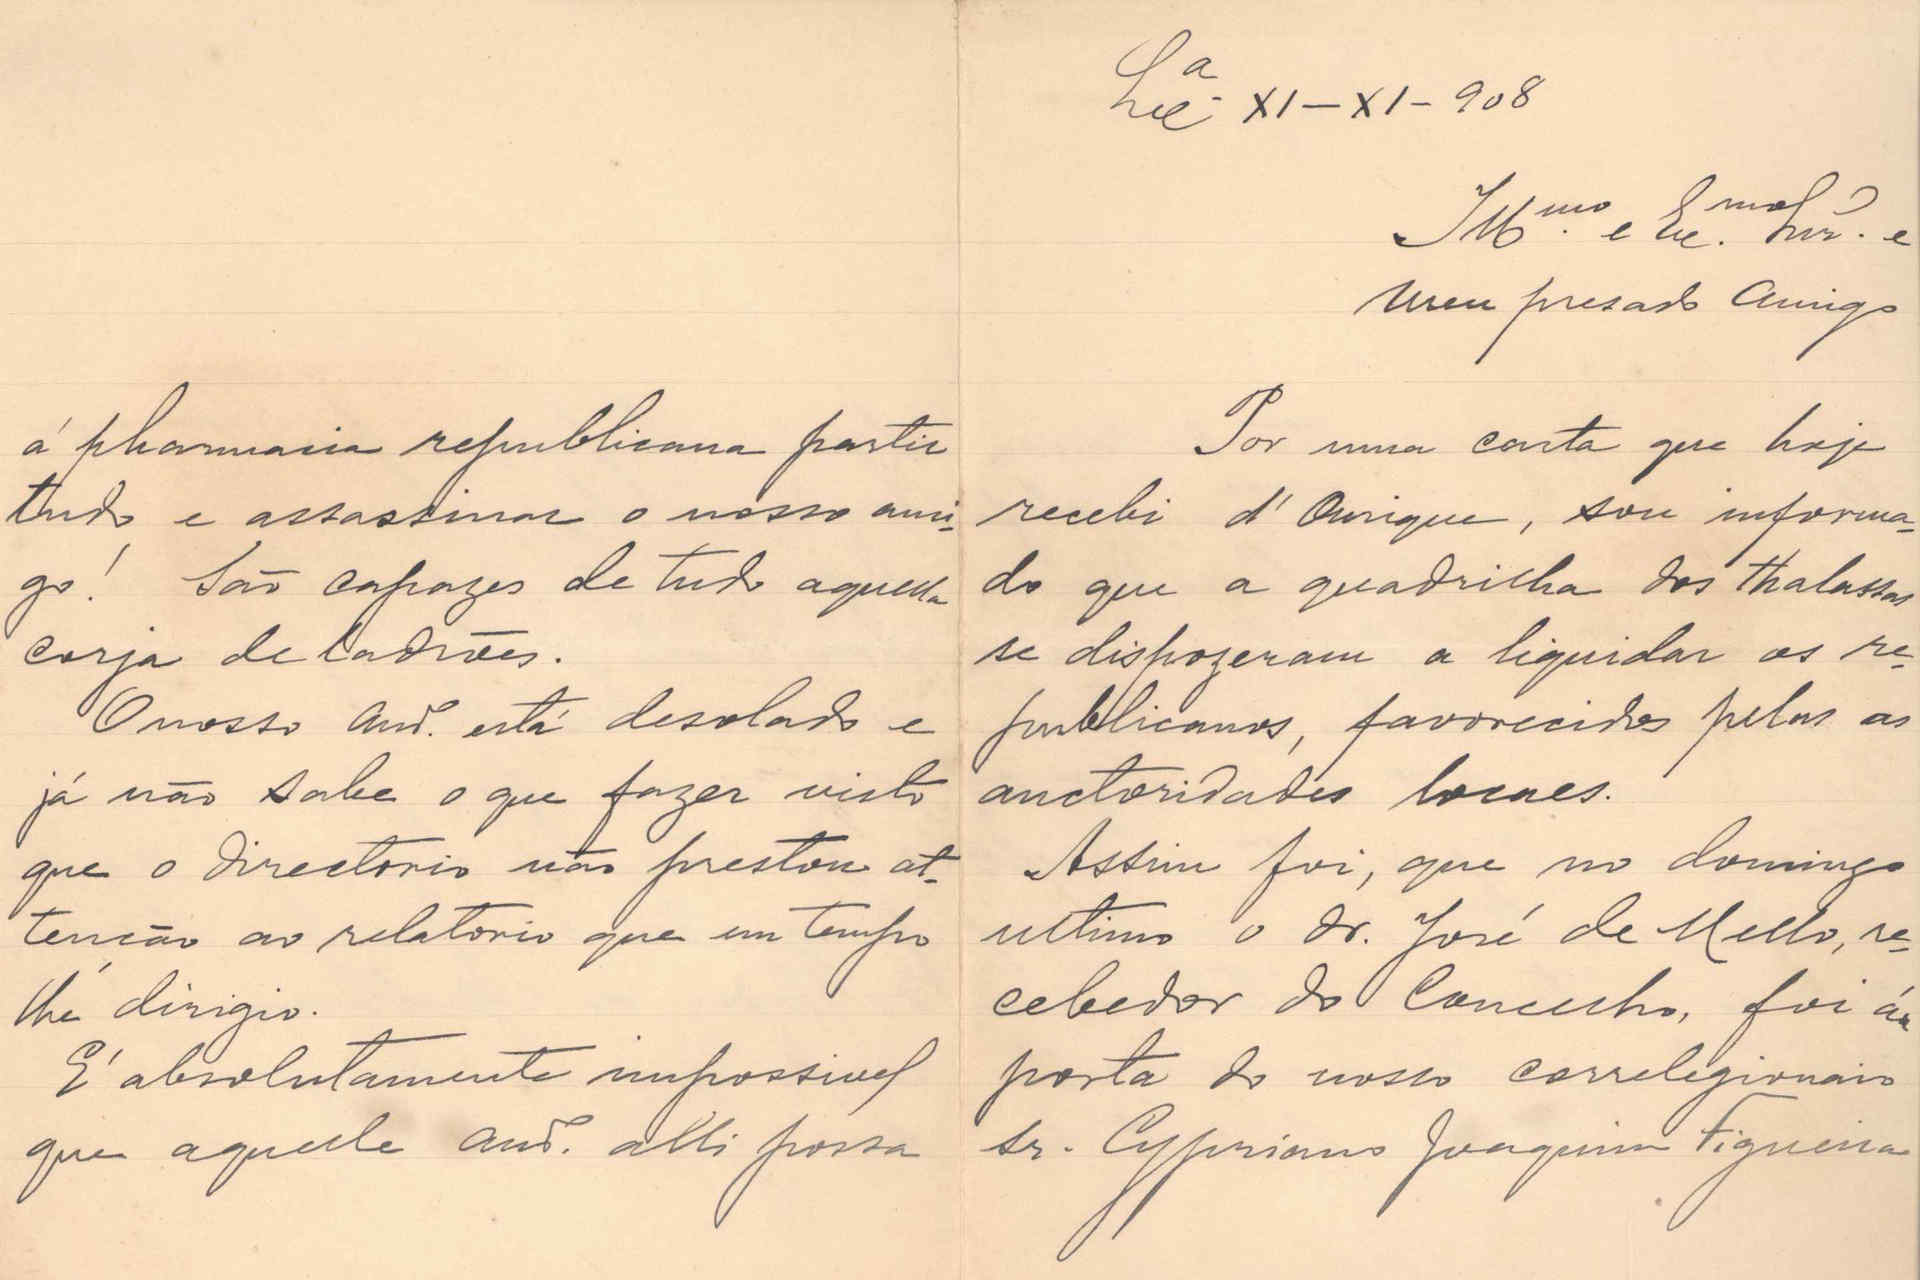 Lxª XI-XI-908
Illmo. e Exmo. Snr. e
Meu presado Amigo
Por uma carta que hoje
recebi d'Ourique, sou informa-
do que a quadrilha dos thalassas
se dispozeram a liquidar os re-
publicanos, favorecidos pelas as
auctoridades locaes.
Assim foi, que no domingo
ultimo o dr. José de Mello, re-
cebedor do Concelho, foi á
porta do nosso correlegionario
sr. Cypriano Joaquim Figueira
á pharmacia republicana partir
tudo e assassinar o nosso ami-
go! São capazes de tudo aquella
corja de ladrões.
O nosso Amº. está desolado e
já não sabe o que fazer visto
que o directorio não prestou at-
tenção ao relatorio que em tempo
lhe dirigio.
É absolutamente impossivel
que aquelle Amº. alli possa